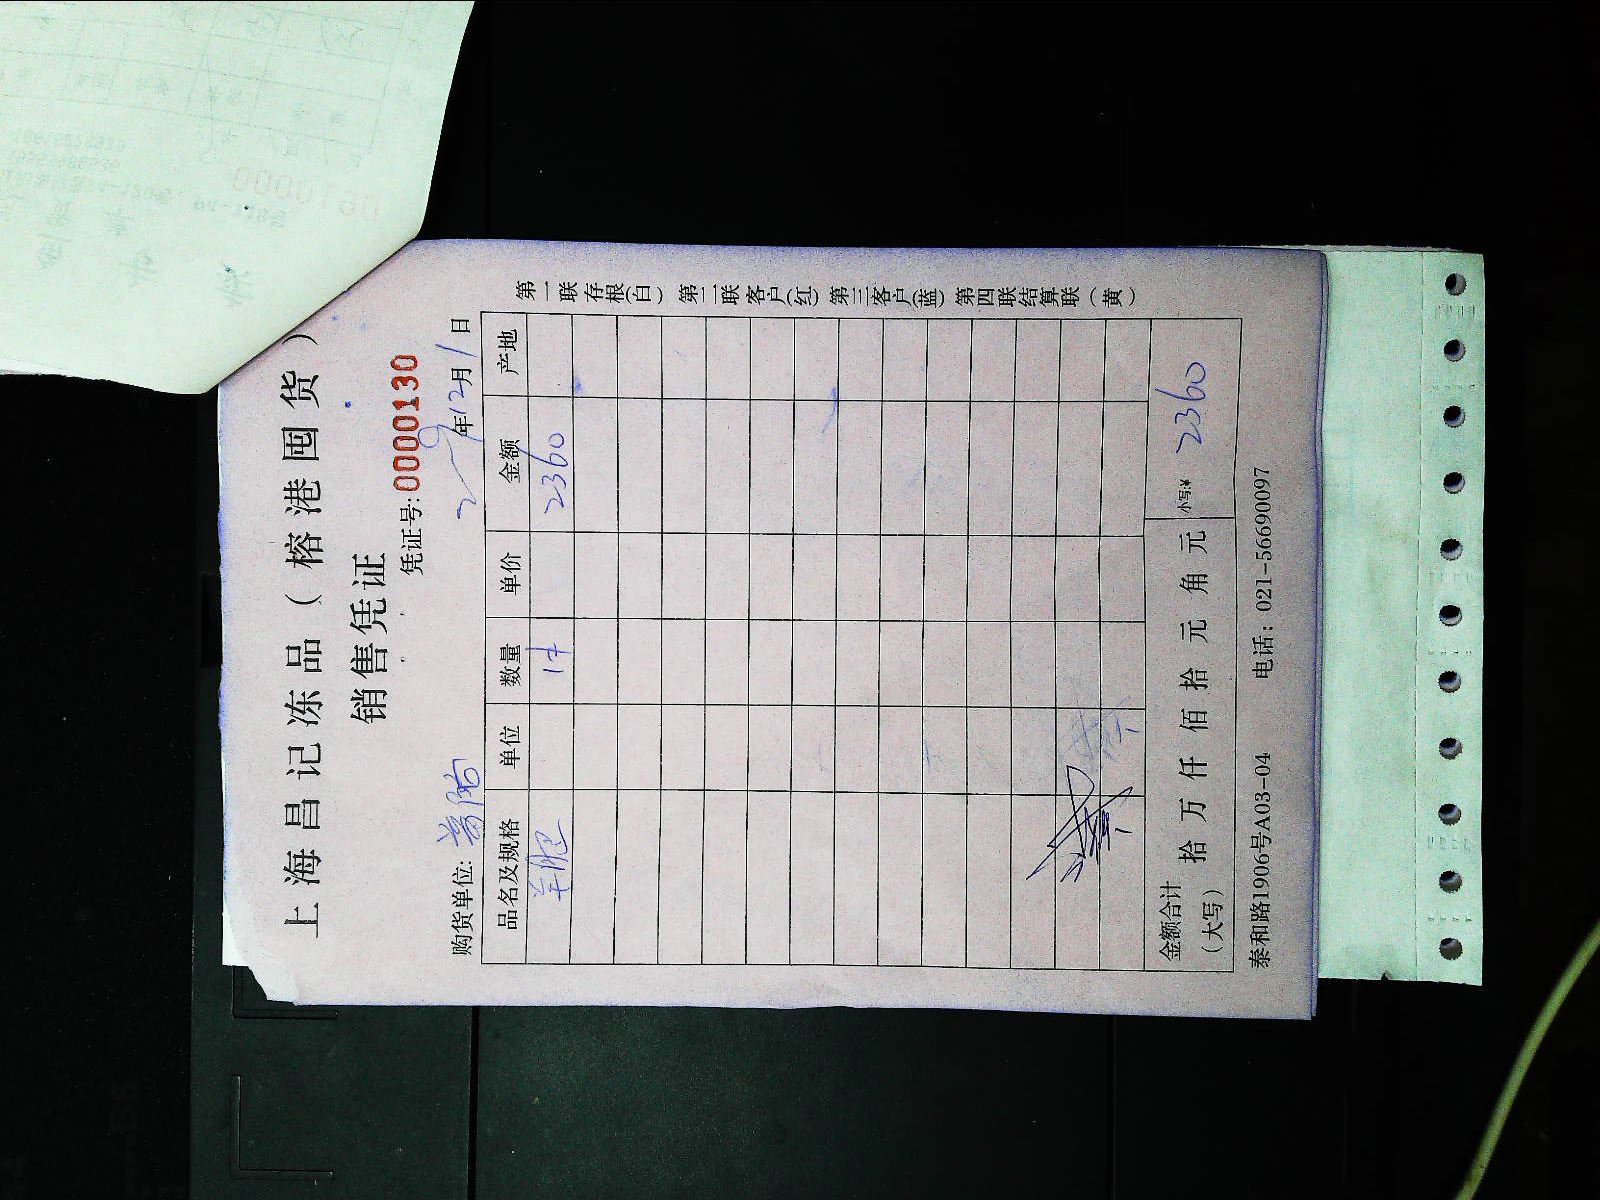 上海昌记冻品（榕港囤货）
销售凭证
凭证号:0000130
购货单位:
年12月1日
品名及规格 单位 数量 单价 金额 产地
2360
金额合计（大写） 拾 万 仟 佰 拾 元 角 元 小写:¥ 2360
泰和路1906号A03-04 电话：021-56690097
第一联存根(白) 第二联客户(红) 第三客户(蓝) 第四联结算联（黄）